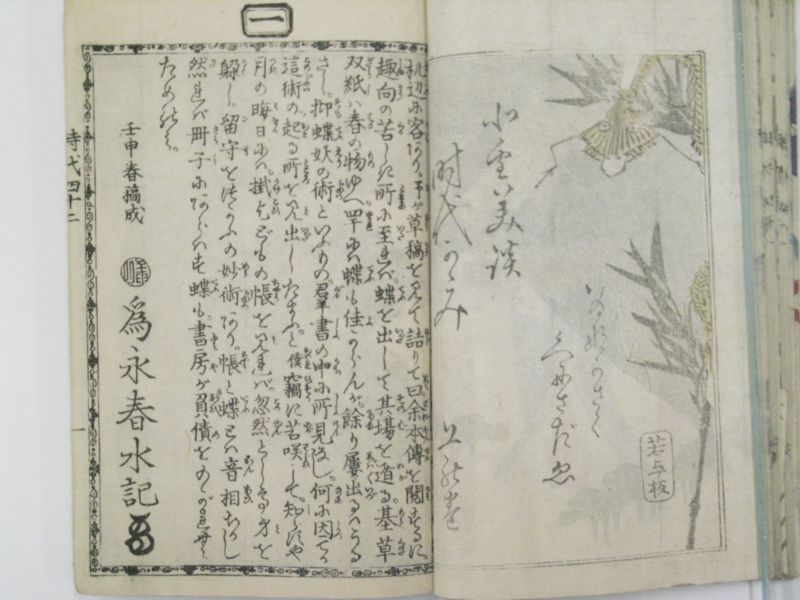 北雪美談
時代かゞみ
くにさだ画
若与板
一
机辺に客あり。予が草稿を見て詰りて曰余本傳を閲するに
趣向の苦しき所に至れバ蝶を出して其場を遁る基草
双紙ハ春の物ゆへ蝶も佳からんが餘り屡出るハうる
さし。抑蝶妖の術といふもの。羣書の中に所見なし。何に因てか
這術の起る所を見出したまふと僕竊に苦咲して。知らずや
月の晦日にハ。掛乞どもの帳を見れバ忽然としてその身を
躱し留守をつかふの妙術あり。帳と蝶とハ音相ちかし
然れバ冊子にあらハす蝶も書房が負債を
ためのみ。
壬申春稿成
為永春水記
時代四十二
一